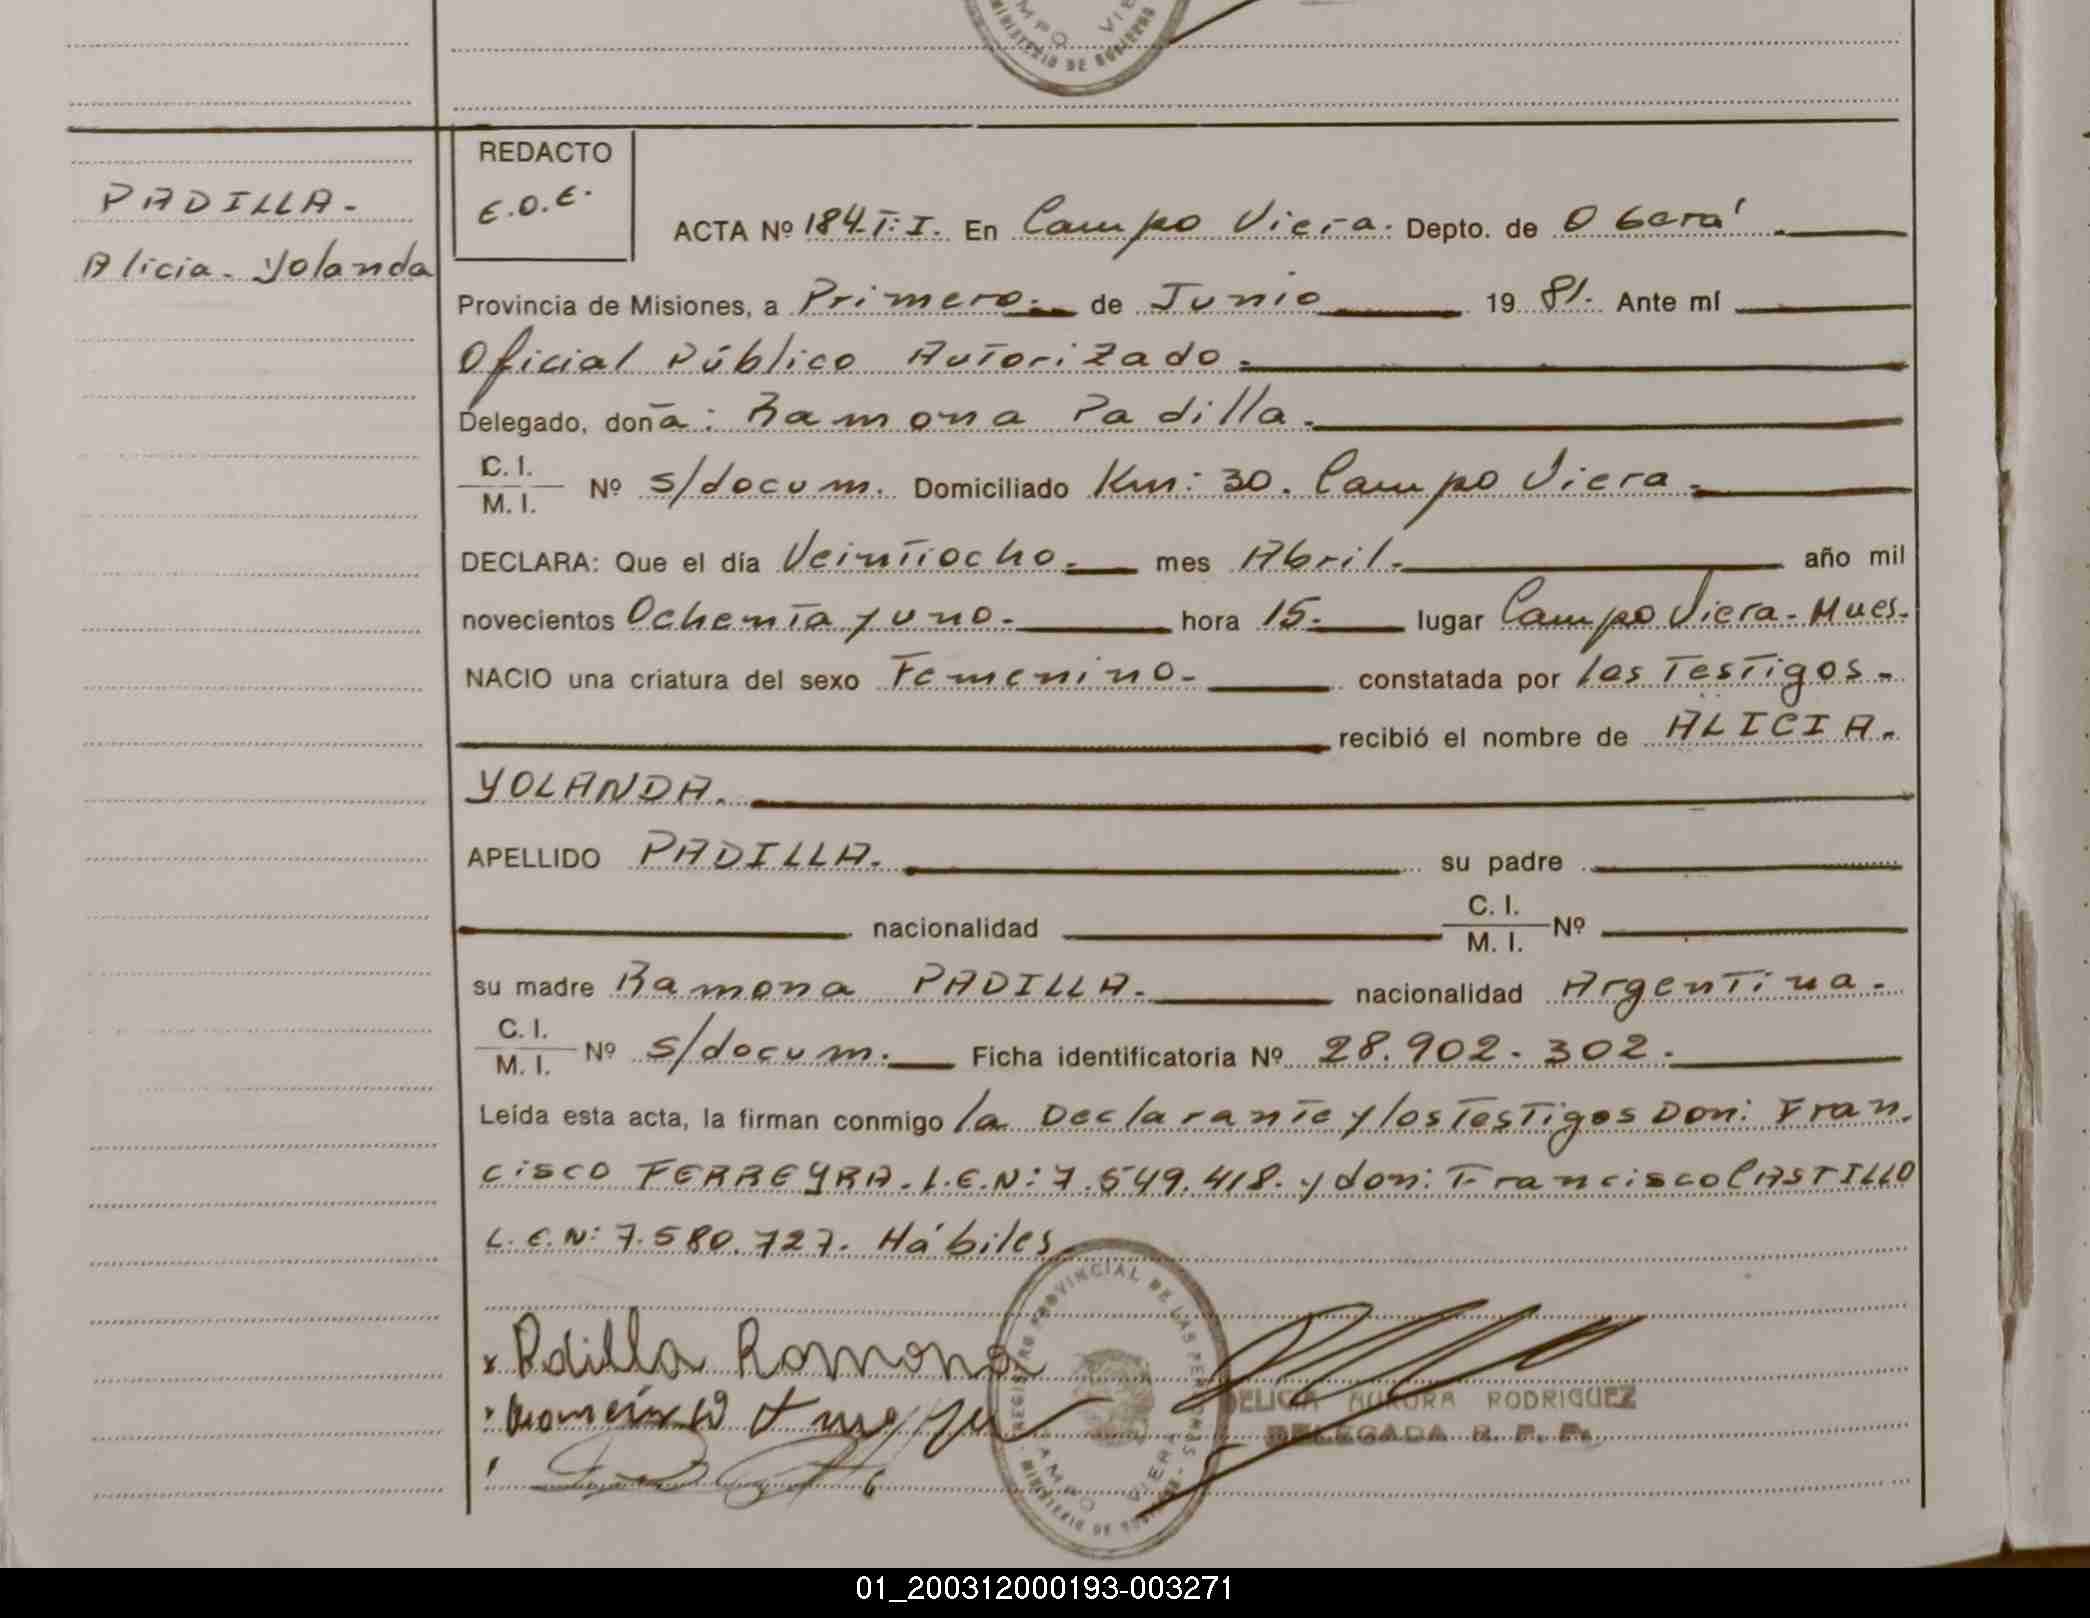 PADILLA.
Alicia. Yolanda
REDACTO
E.O.E.
ACTA Nº 184.T:I. En Campo Viera. Depto. de Oberá.
Provincia de Misiones, a Primero. de Junio 19 81. Ante mí
Oficial Público Autorizado.
Delegado, doña: Ramona Padilla.
C. I.
M. I. Nº s/docum. Domiciliado Km: 30. Campo Viera.
DECLARA: Que el día Veintiocho. mes Abril. año mil
novecientos Ochenta y uno. hora 15. lugar Campo Viera. Mnes.
NACIO una criatura del sexo Femenino. constatada por los Testigos.
recibió el nombre de ALICIA.
YOLANDA.
APELLIDO PADILLA. su padre
nacionalidad C. I. M. I. Nº
su madre Ramona PADILLA. nacionalidad Argentina.
C. I.
M. I. Nº s/docum. Ficha identificatoria Nº 28.902.302.
Leída esta acta, la firman conmigo la Declarante y los Testigos Don: Fran.
cisco FERREYRA. L.E.N: 7.549.418. y don: Francisco CASTILLO
L.E.N: 7.580.727. Hábiles.
Pdilla Ramona
REGISTRO PROVINCIAL DE LAS PERSONAS
CAMPO VIERA
MINISTERIO DE GOBIERNO
DELICIA AURORA RODRIGUEZ
DELEGADA R. P. P.
01_200312000193-003271